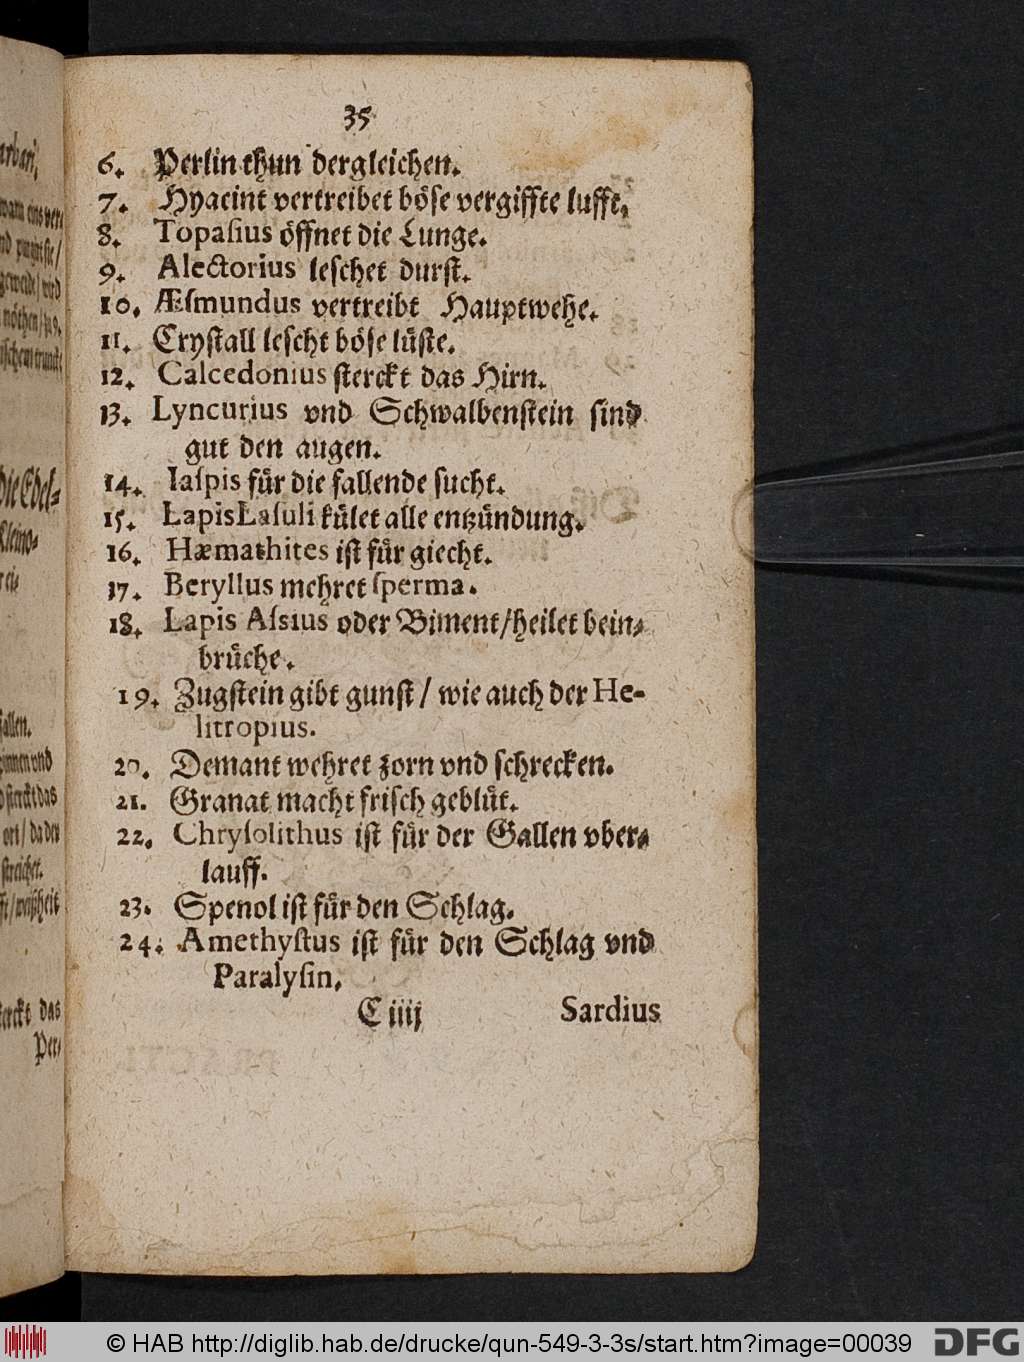 35
6. Perlin thun dergleichen.
7. Hyacint vertreibet böse vergiffte lufft.
8. Topaſius öffnet die Lunge.
9. Alectorius leschet durst.
10. Æſmundus vertreibt Hauptwehe.
11. Crystall lescht böse lüste.
12. Calcedonius sterckt das Hirn.
13. Lyncurius vnd Schwalbenstein sind
gut den augen.
14. Iaſpis für die fallende sucht.
15. Lapis Laſuli kület alle entzündung.
16. Hæmathites ist für giecht.
17. Beryllus mehret ſperma.
18. Lapis Aſsius oder Biment/heilet bein-
brüche.
19. Zugstein gibt gunst / wie auch der He-
litropius.
20. Demant wehret zorn vnd schrecken.
21. Granat macht frisch geblüt.
22. Chryſolithus ist für der Gallen vber-
lauff.
23. Spenol ist für den Schlag.
24. Amethyſtus ist für den Schlag vnd
Paralyſin.
C iiij Sardius
die Edel-
fallen.
sterckt das
Per-
© HAB http://diglib.hab.de/drucke/qun-549-3-3s/start.htm?image=00039
DFG